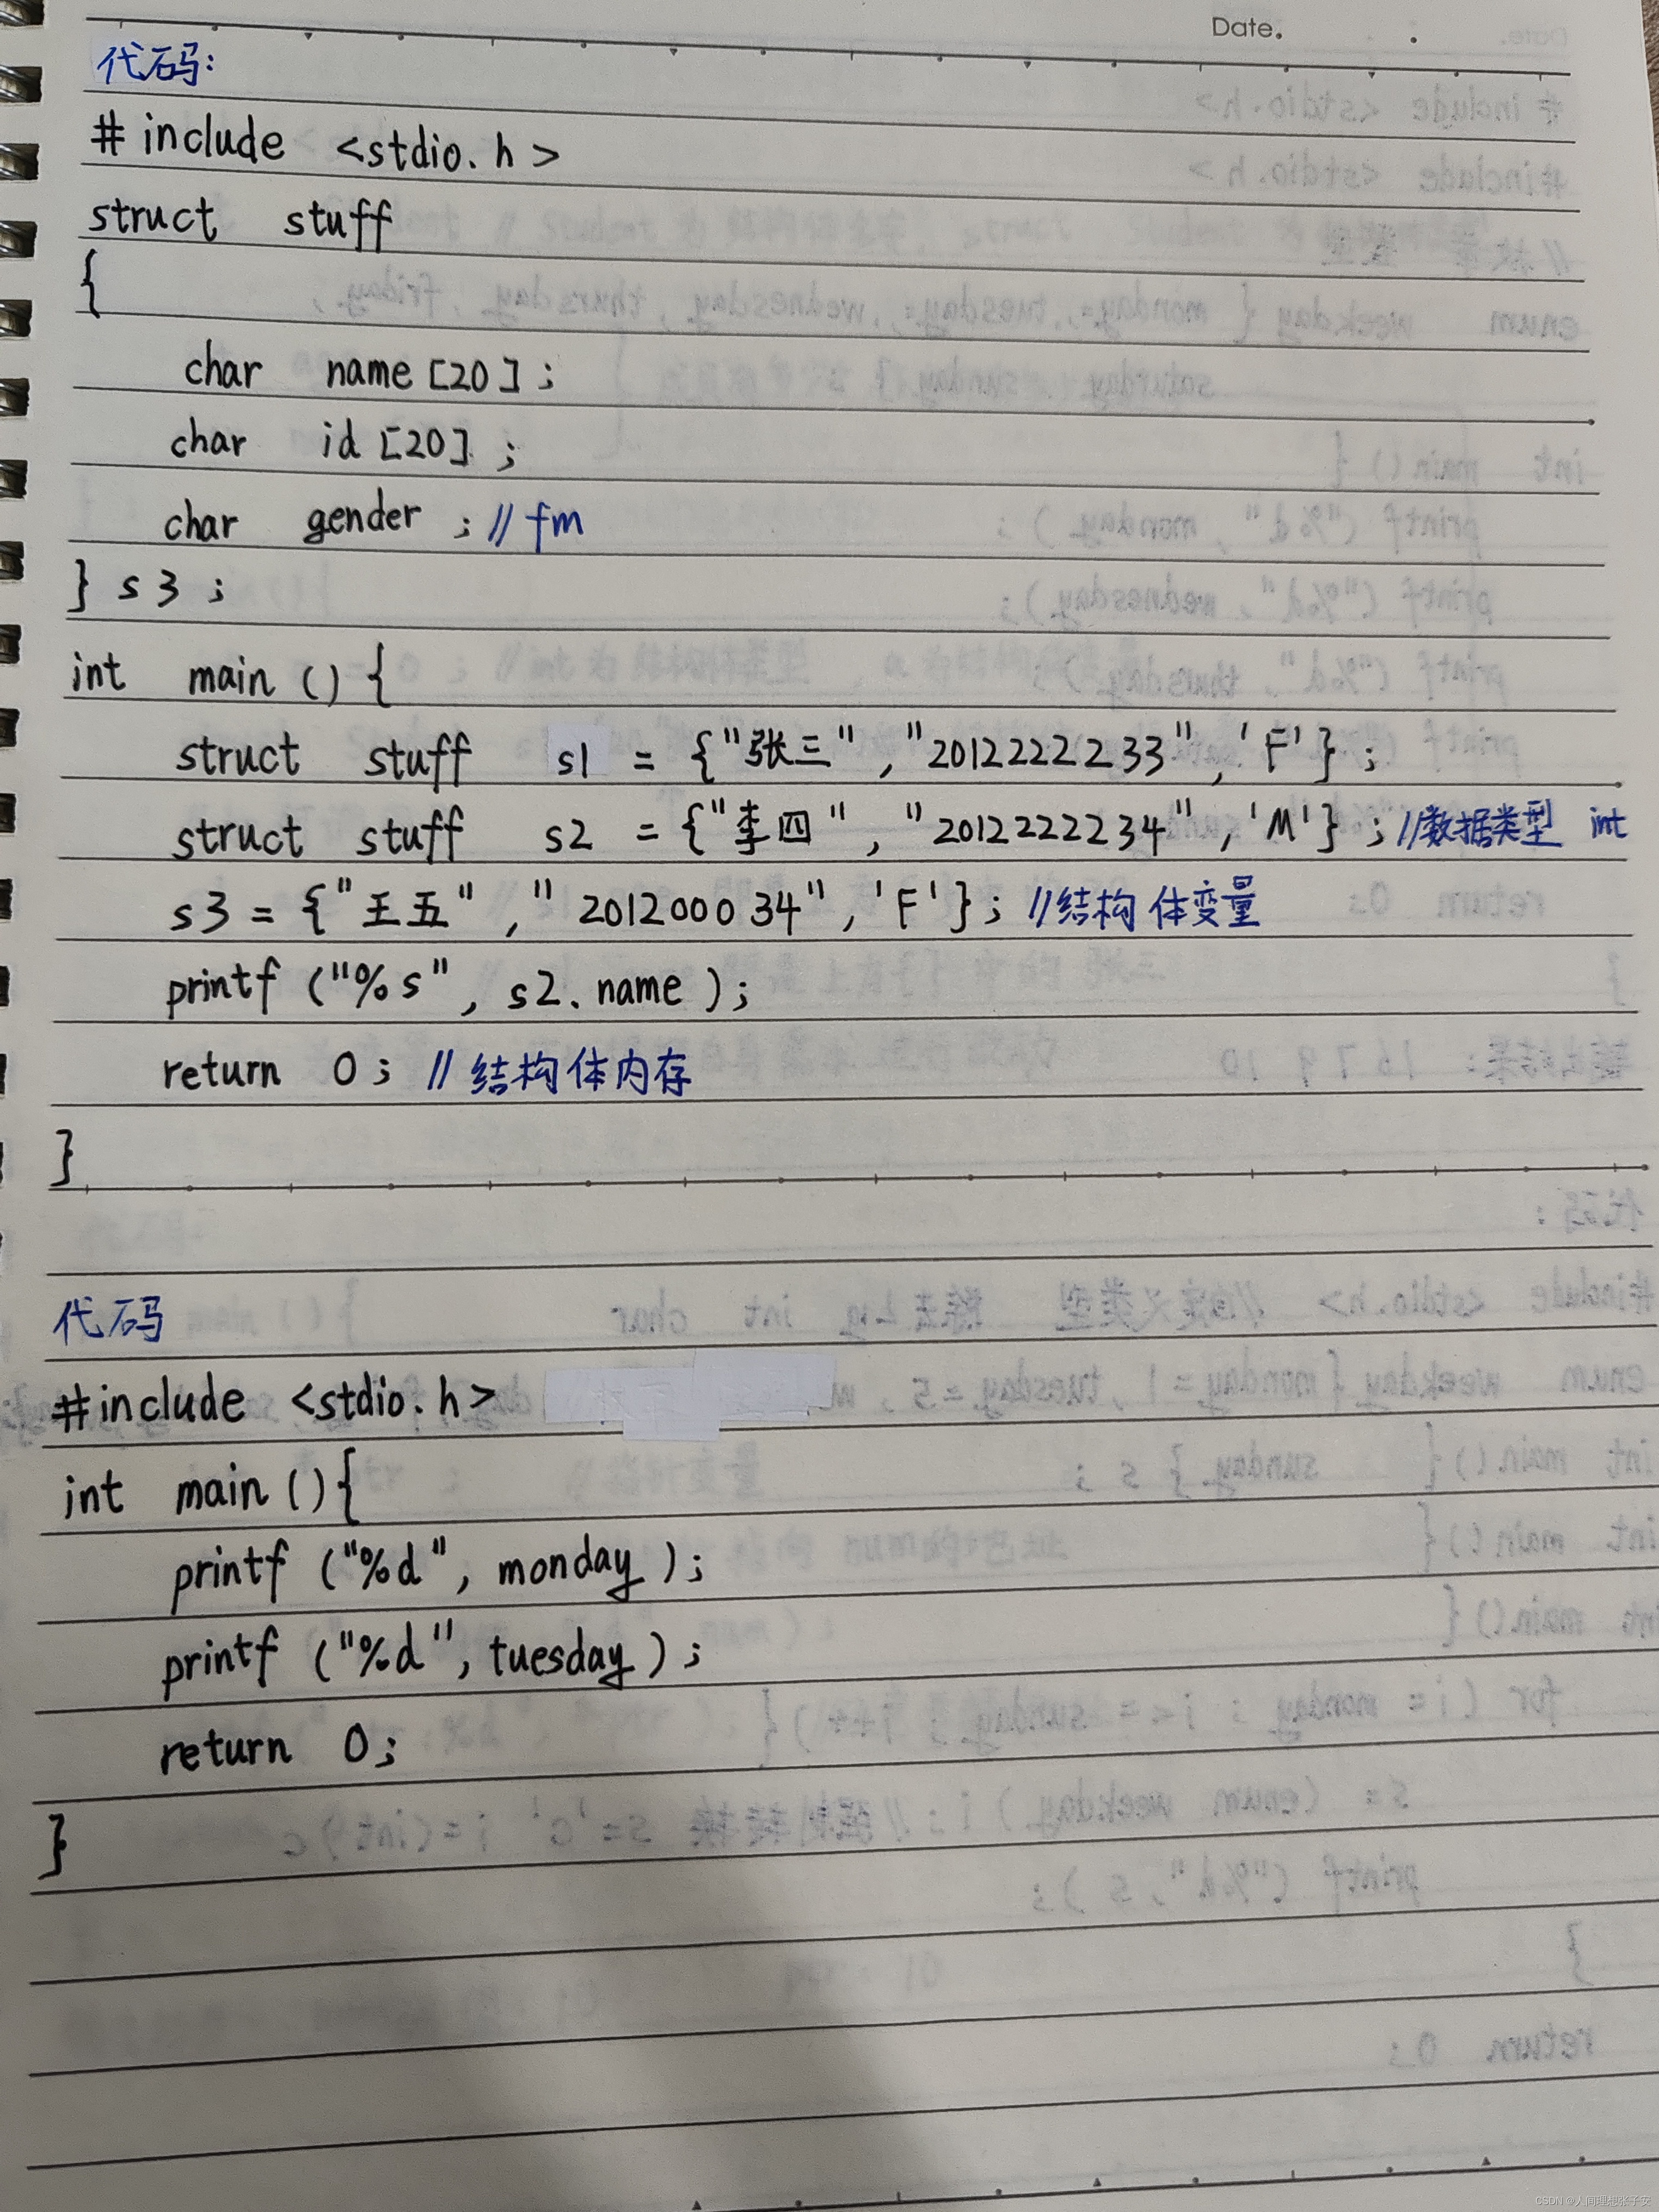 Date.
代码:
# include <stdio.h>
struct stuff
{
char name[20];
char id[20];
char gender; // fm
} s3;
int main(){
struct stuff s1 = {"张三", "2012222233", 'F'};
struct stuff s2 = {"李四", "2012222234", 'M'}; //数据类型 int
s3 = {"王五", "201200034", 'F'}; //结构体变量
printf("%s", s2.name);
return 0; // 结构体内存
}
代码
#include <stdio.h>
int main(){
printf("%d", monday);
printf("%d", tuesday);
return 0;
}
CSDN @人间理想张子安